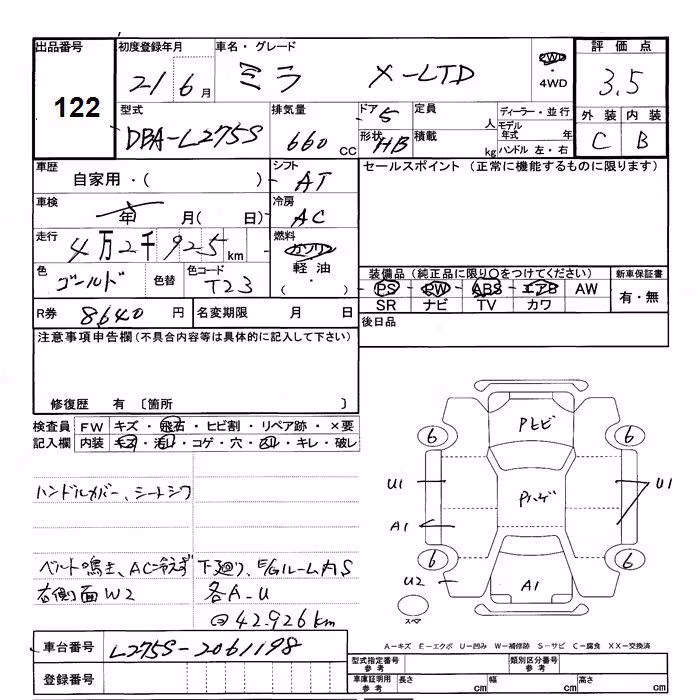 出品番号 初度登録年月 車名・グレード 評価点
122 21 6月 ミラ X-LTD 2WD・4WD 3.5
型式 排気量 ドア 5 定員 人 ディーラー・並行 外装 内装
DBA-L275S 660 CC 形状 HB 積載 kg モデル年式 年 C B
ハンドル 左・右
車歴 自家用・( ) シフト AT セールスポイント (正常に機能するものに限ります)
車検 年 月( 日) 冷房 AC
走行 4万2千925km 燃料 ガソリン
軽油
( ・ )
色 ゴールド 色替 色コード T23 装備品 (純正品に限り〇をつけてください) 新車保証書
PS PW ABS エアB AW 有・無
SR ナビ TV カワ
R券 8640円 名変期限 月 日 後日品
注意事項申告欄(不具合内容等は具体的に記入して下さい)
修復歴 有 〔箇所 〕
検査員 FW キズ・飛石・ヒビ割・リペア跡・×要
記入欄 内装 キズ・汚レ・コゲ・穴・スレ・キレ・破レ
ハンドルカバー、シートシワ
ベルト鳴き、AC冷えず 下廻り、E/Gルーム内S
右側面W2 各A-U
@42.926km
Pトビ
6 6
U1 Pハゲ U1
A1
6 6
U2 A1
スペア
A-キズ E-エクボ U-凹み W-補修跡 S-サビ C-腐食 XX-交換済
車台番号 L275S-2061198
登録番号
型式指定番号 参考 類別区分番号 参考
車庫証明用 参考 長さ cm 幅 cm 高さ cm